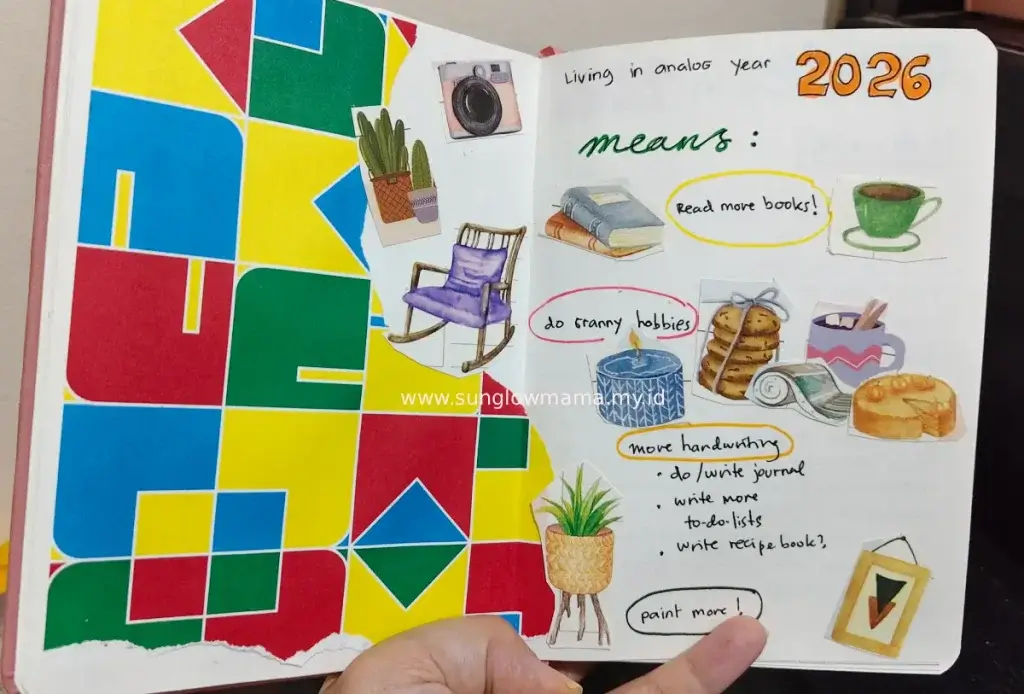 Living in analog year 2026
means:
Read more books!
do granny hobbies
www.sunglowmama.my.id
more handwriting
• do/write journal
• write more
to-do-lists
• write recipe book?
paint more!